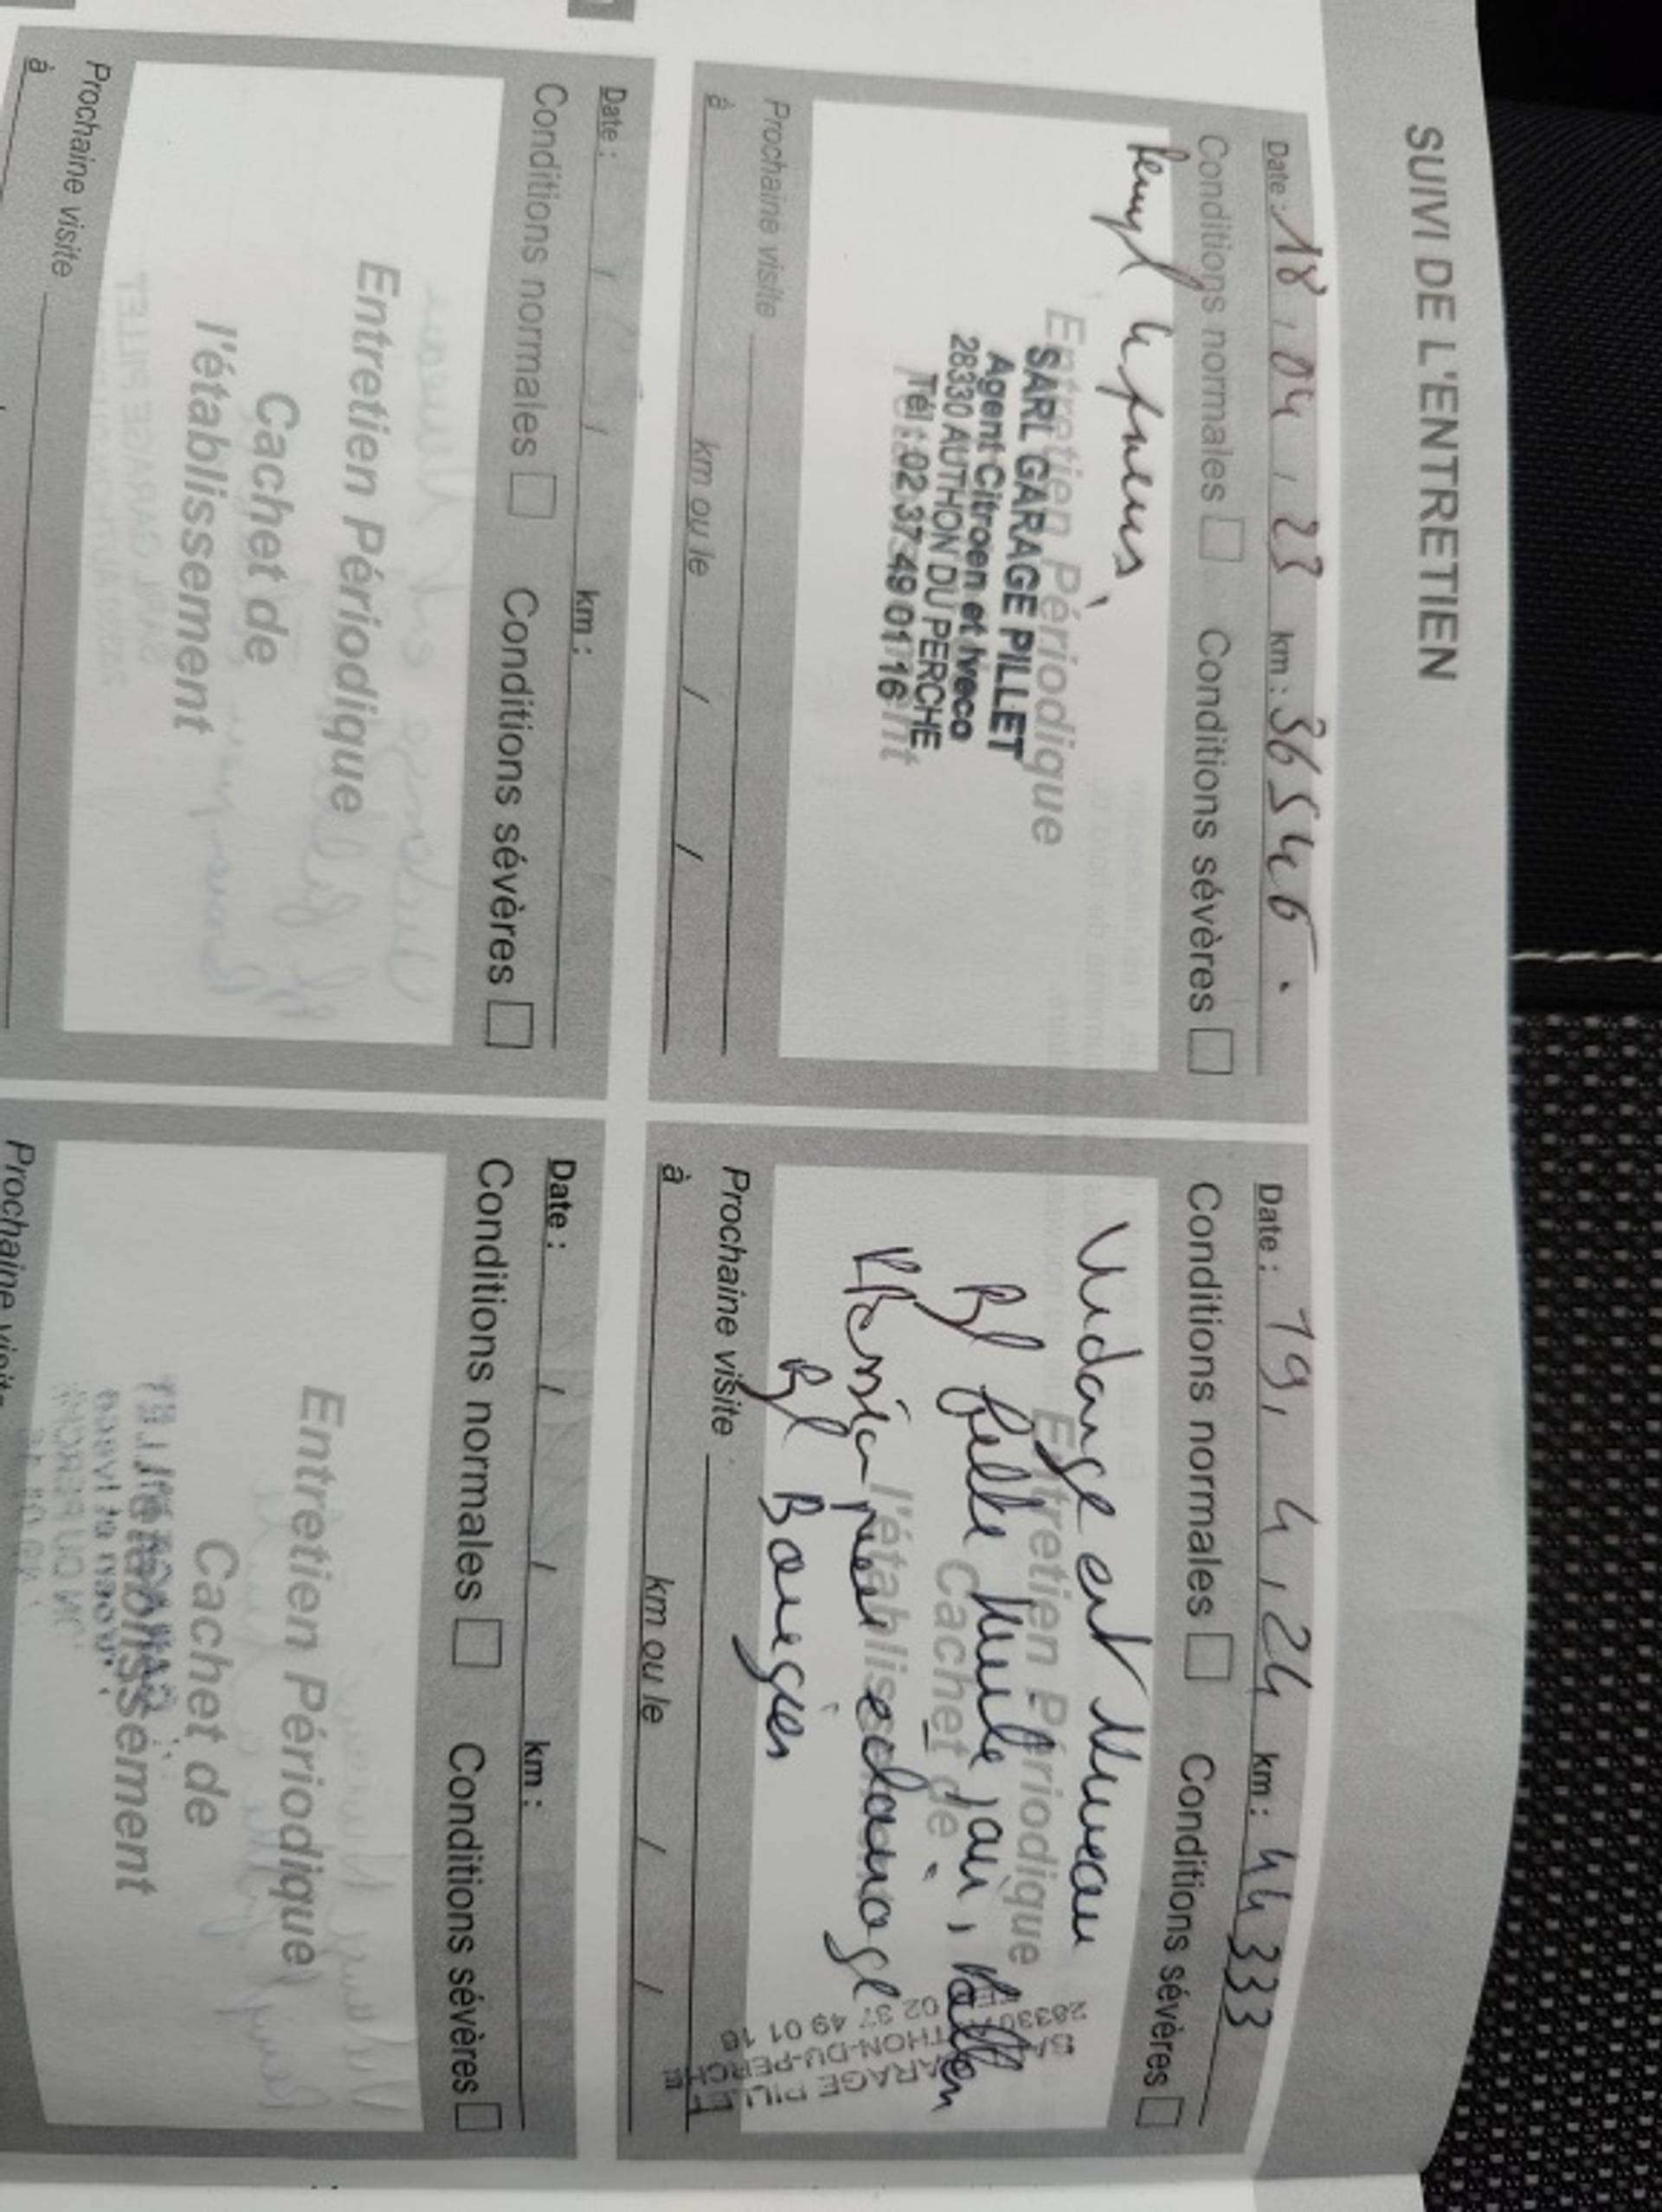 SUIVI DE L'ENTRETIEN
Date : 18 / 04 / 23 km : 36546.
Conditions normales Conditions sévères
Entretien Périodique
SARL GARAGE PILLET
Agent Citroen et Iveco
28330 AUTHON DU PERCHE
Tél : 02 37 49 01 16
Prochaine visite
à km ou le / /
Date : 19 / 4 / 24 km : 44333
Conditions normales Conditions sévères
Entretien Périodique
Cachet de
l'établis
Vidange et Niveau
Rpl huile
Bougies
GARAGE PILLET
THON-DU-PERCHE
28330
02 37 49 01 16
Prochaine visite
à km ou le / /
Date : / / km :
Conditions normales Conditions sévères
Entretien Périodique
Cachet de
l'établissement
Prochaine visite
à
Date : / / km :
Conditions normales Conditions sévères
Entretien Périodique
Cachet de
l'établissement
Prochaine visite